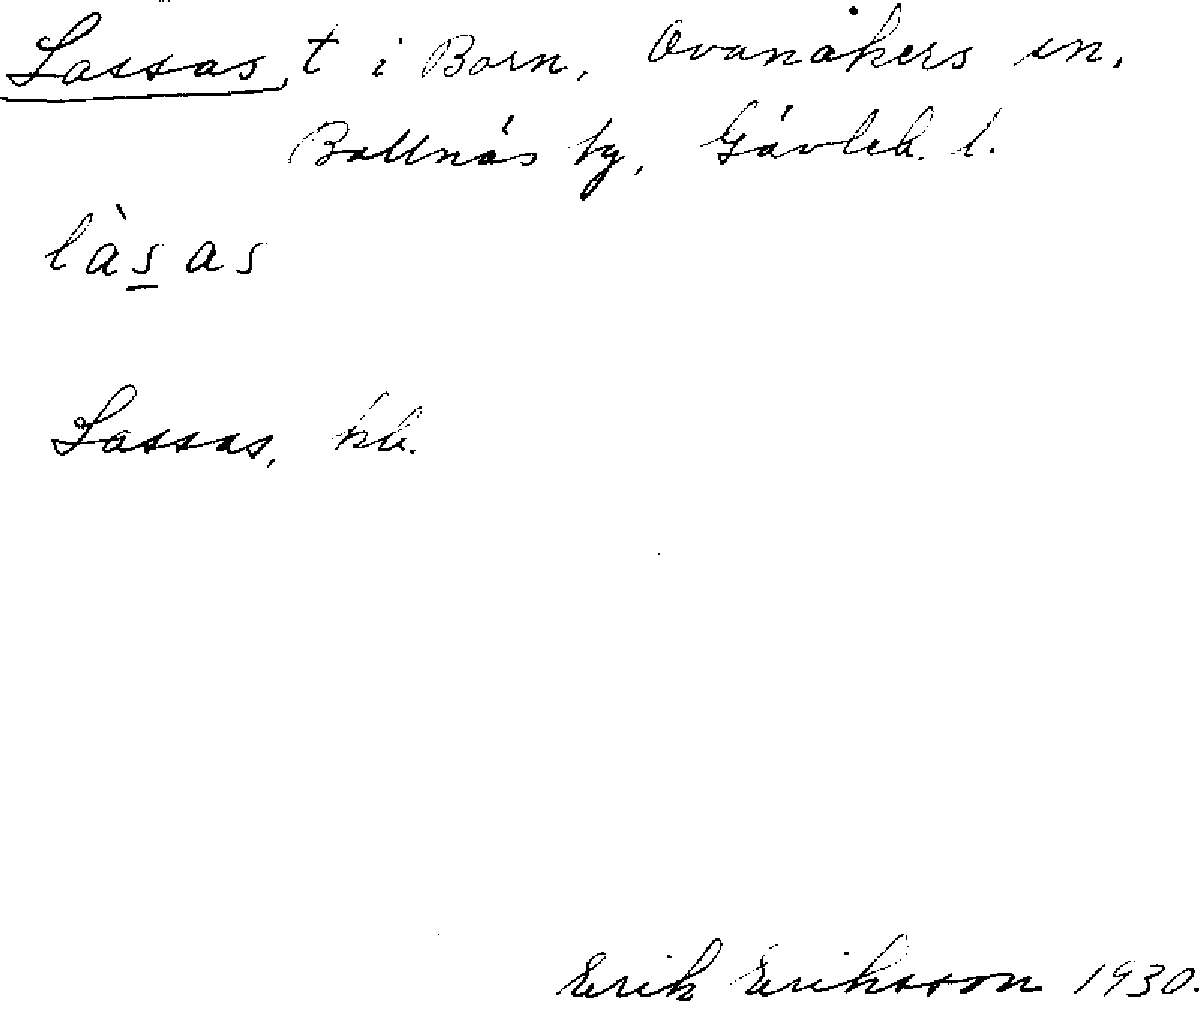 Lassas, t i Born, Ovanåkers sn.
Bollnäs tg, Gävleb. l.
làs̲as
Lassas, kb.
Erik Eriksson 1930.